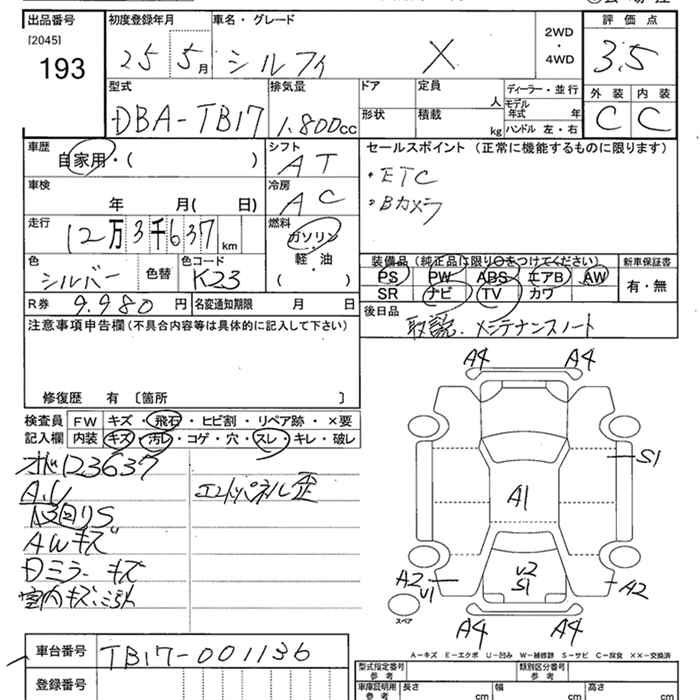 出品番号 初度登録年月 車名・グレード 2WD・4WD 評価点
[2045]
193 25 5月 シルフィ X 3.5
型式 排気量 ドア 定員 人 ディーラー・並行 外装 内装
DBA-TB17 1.800cc 形状 積載 kg モデル年式 年 ハンドル 左・右 C C
車歴 シフト セールスポイント (正常に機能するものに限ります)
自家用・( ) AT ・ETC
車検 冷房 ・Bカメラ
年 月( 日) AC
走行 燃料
12万3千637km ガソリン
軽・油
( )
色 色コード
シルバー 色替 K23
装備品 (純正品に限り○をつけてください) 新車保証書
PS PW ABS エアB AW 有・無
SR ナビ TV カワ
R券 9.980円 名変通知期限 月 日
後日品 取説.メンテナンスノート
注意事項申告欄 (不具合内容等は具体的に記入して下さい)
修復歴 有 〔箇所 〕
検査員 FW キズ・飛石・ヒビ割・リペア跡・×要
記入欄 内装 キズ・汚レ・コゲ・穴・スレ・キレ・破レ
123637
エンドパネル歪
S
AWキズ
ミラーキズ
室内キズ、
A4 A4
S1
A1
A2 U1 S1 A2
スペア
A4 A4
A-キズ E-エクボ U-凹み W-補修跡 S-サビ C-腐食 XX-交換済
車台番号 TB17-001136
登録番号
型式指定番号 参考 類別区分番号 参考
車庫証明用 参考 長さ cm 幅 cm 高さ cm